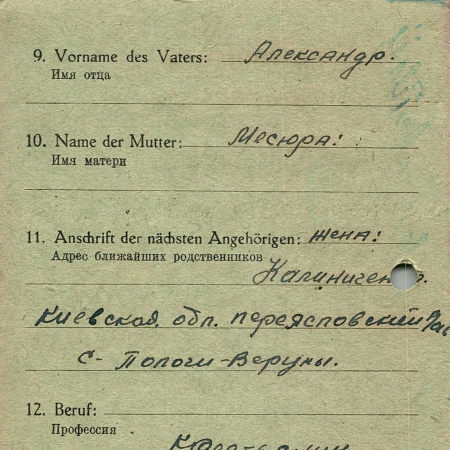 9. Vorname des Vaters: Александр.
Имя отца
10. Name der Mutter: Месюра:
Имя матери
11. Anschrift der nächsten Angehörigen: жена:
Адрес ближайших родственников
Киевская обл. переясловский
с- Пологи-Вергуны.
12. Beruf:
Профессия